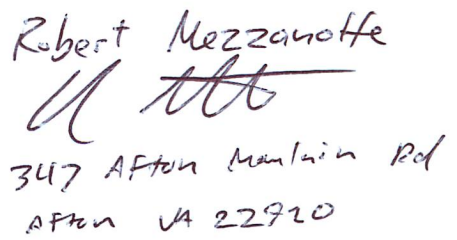 Robert Mezzanotte
347 Afton Mountain Rd
Afton VA 22920